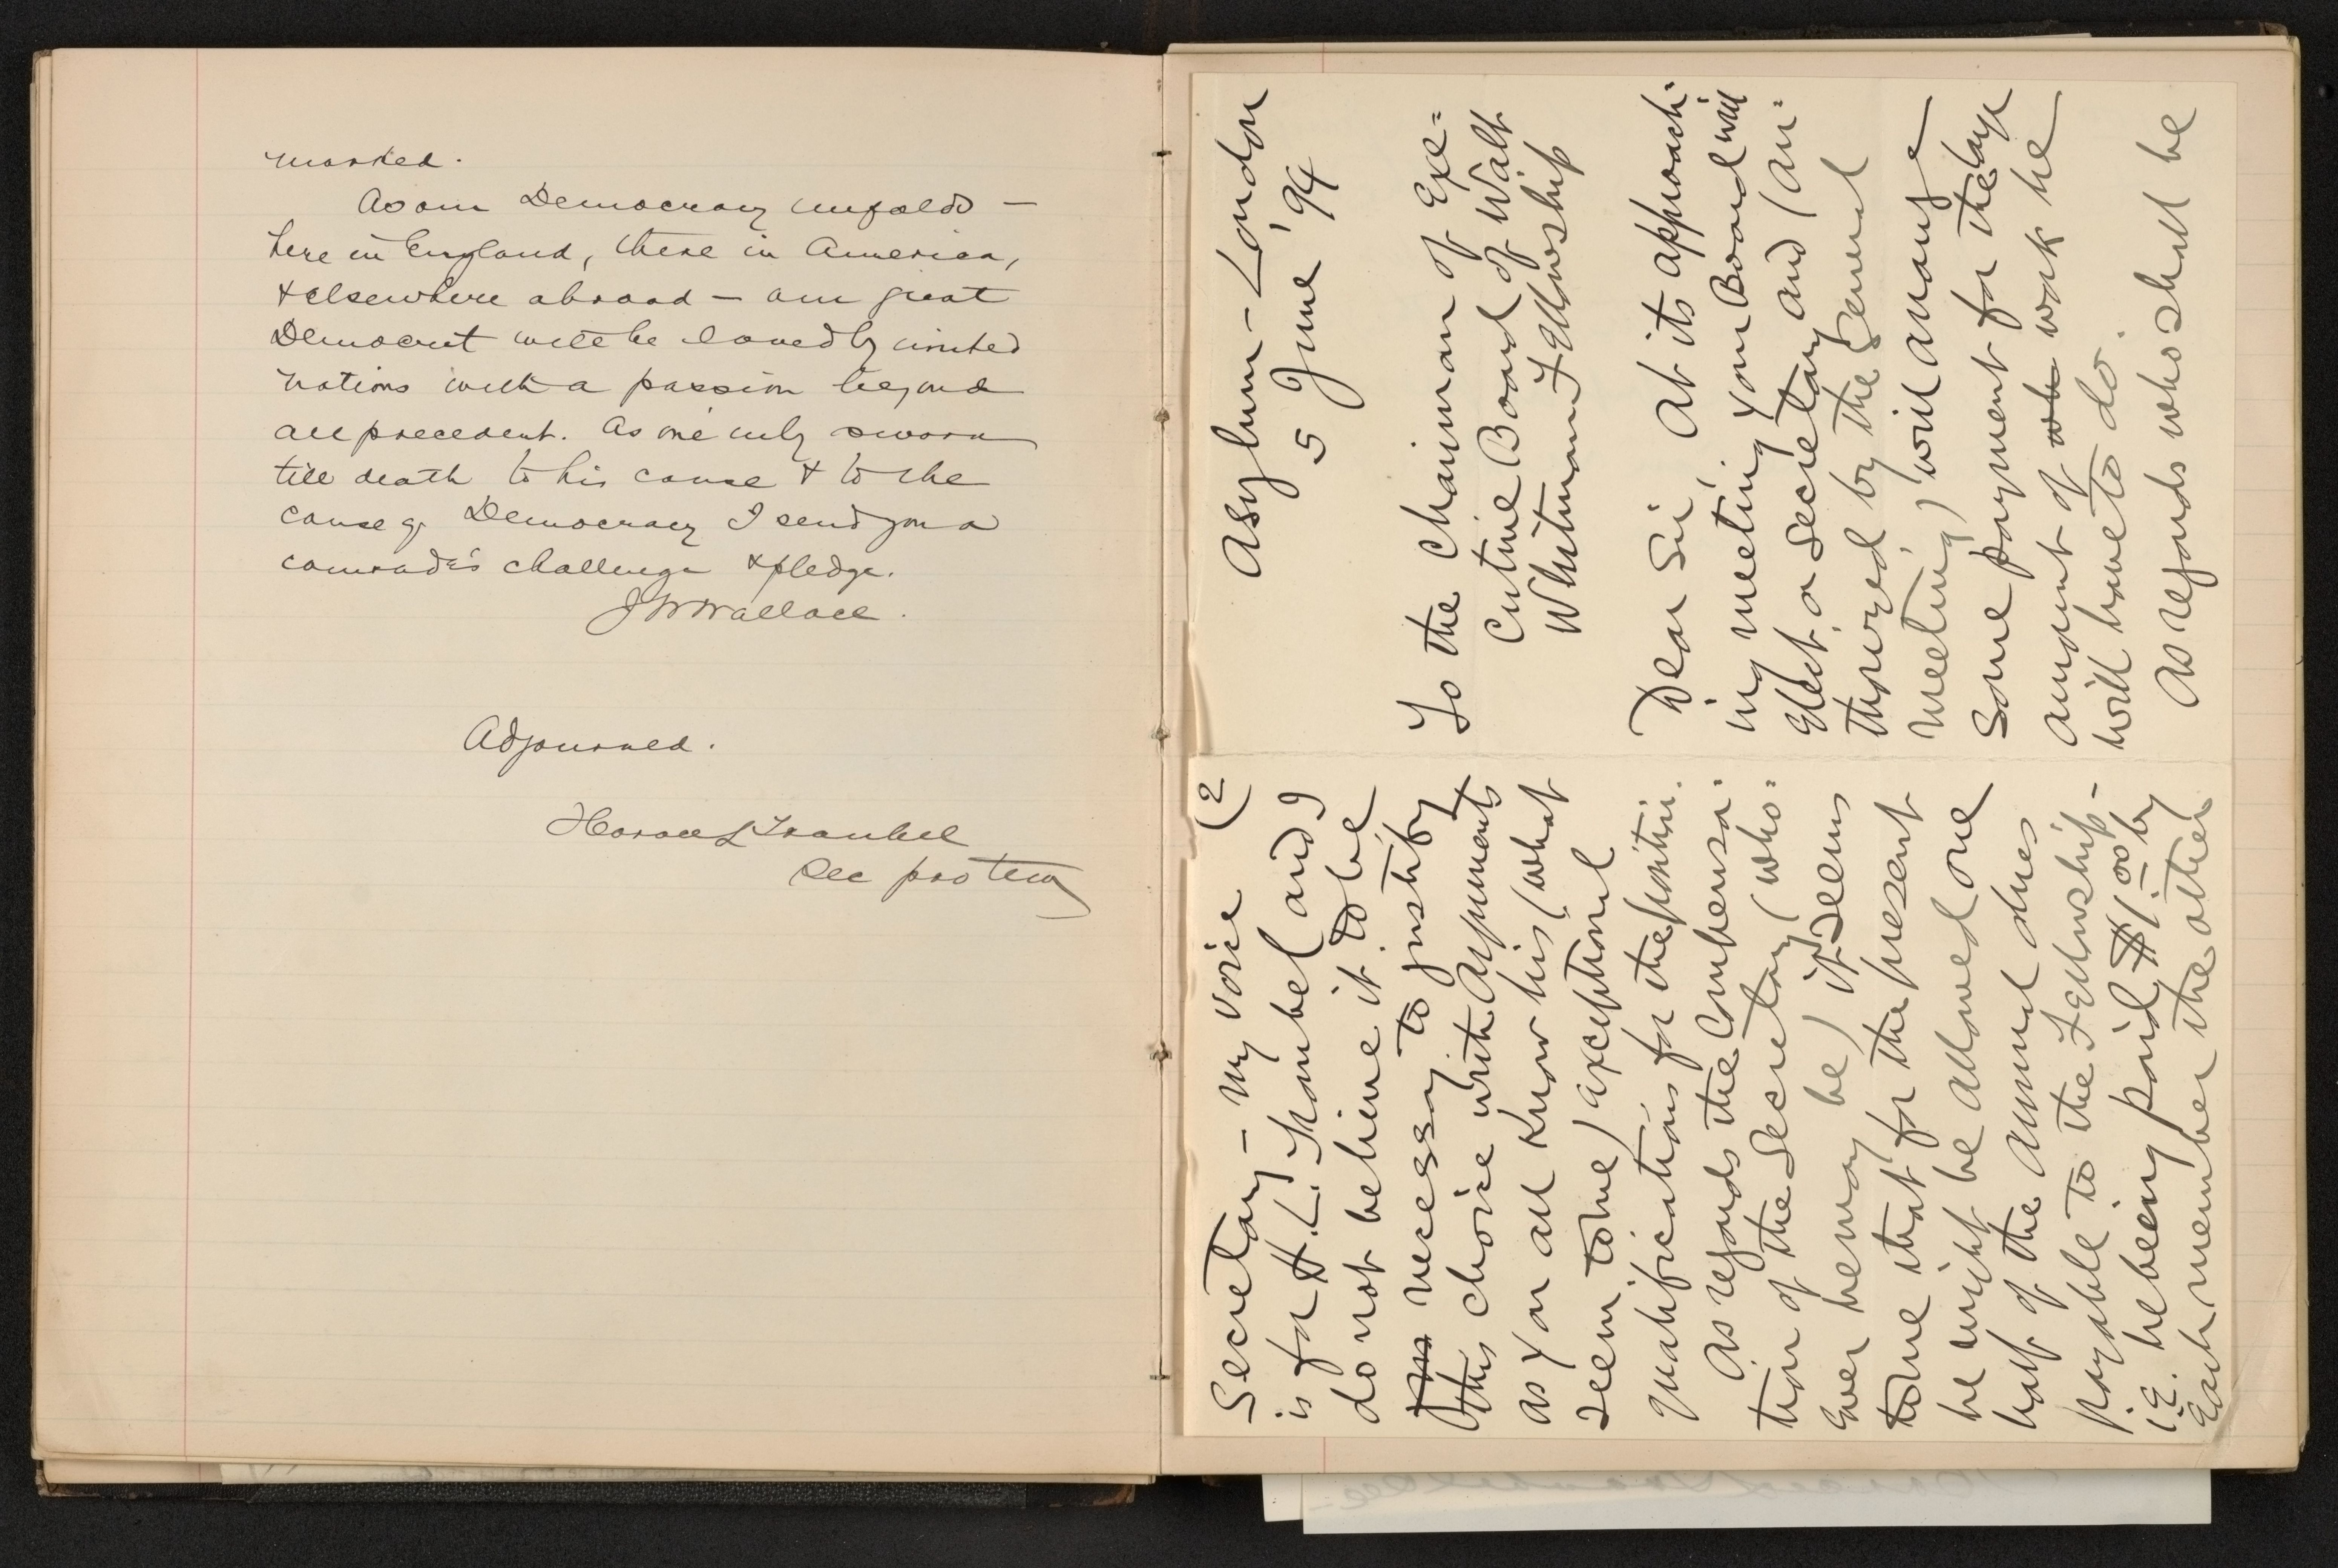 marked.
As our Democracy unfolds —
here in England, there in America,
& elsewhere abroad — our great
Democrat will be loved by united
nations with a passion beyond
all precedent. As one only sworn
till death to his cause & to the
cause of Democracy I send you a
comrade's challenge & pledge.
J W Wallace.
Adjourned.
Horace L Traubel
Sec pro tem
Asylum - London
5 June '94
To the Chairman of Exe=
cutive Board of Walt
Whitman Fellowship
Dear Sir, At its approach-
ing meeting your Board will
elect a Secretary and (au-
thorized by the general
meeting) will arrange
some payment for the large
amount of work he
will have to do.
As regards who shall be
(2
Secretary - my voice
is for H. L. Traubel (and I
do not believe it to be
necessary to justify
this choice with arguments
as you all know his (what
seem to me) exceptional
qualifications for the position.
As regards the compensa-
tion of the Secretary (who-
ever he may be) it seems
to me that for the present
he might be allowed one
half of the annual dues
payable to the Fellowship -
i.e. he being paid $1.00 by
each member the other